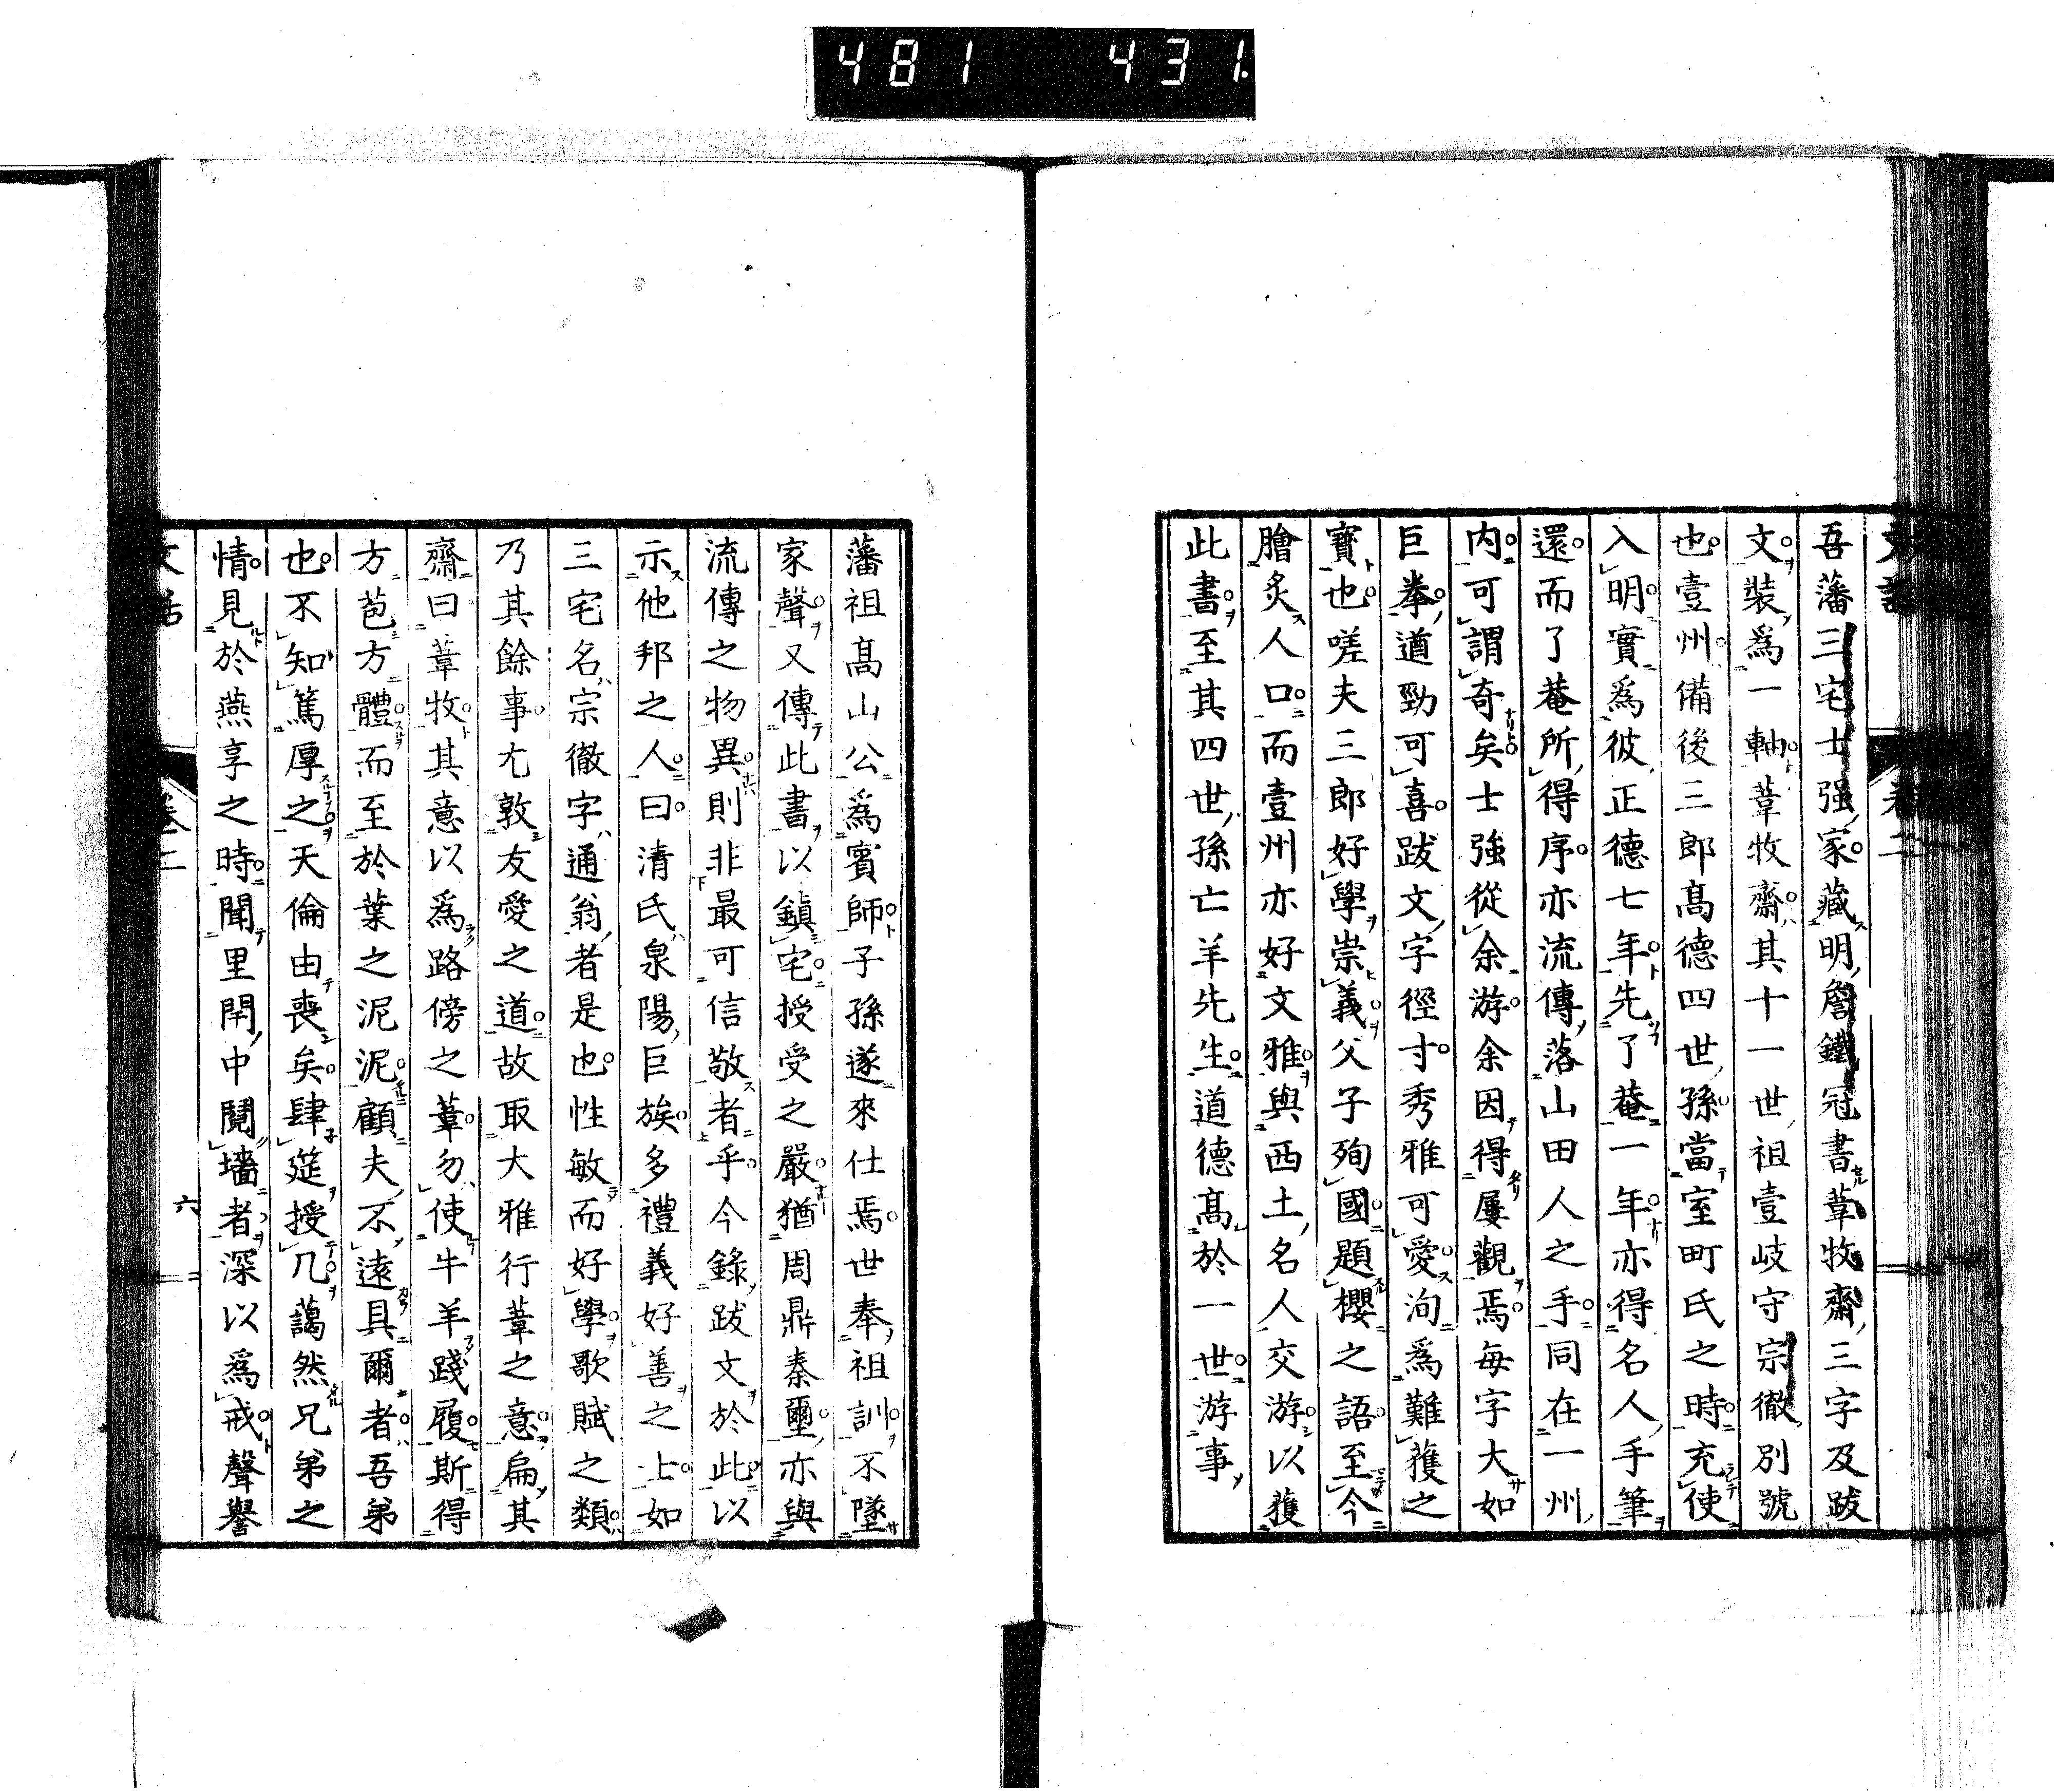 481 431
吾藩三宅士强家藏明詹鐵冠書葦牧齋三字及跋
文裝爲一軸葦牧齋其十一世祖壹岐守宗徹別號
也壹州備後三郎髙德四世孫當室町氏之時充使
入明實爲彼正德七年先了菴一年亦得名人手筆
還而了菴所得序亦流傳落山田人之手同在一州
内可謂奇矣士強從余游余因得屢觀焉每字大如
巨拳遒勁可喜跋文字徑寸秀雅可愛洵爲難獲之
寶也嗟夫三郎好學崇義父子殉國題櫻之語至今
膾炙人口而壹州亦好文雅與西土名人交游以獲
此書至其四世孫亡羊先生道德髙於一世游事
藩祖髙山公爲賓師子孫遂來仕焉世奉祖訓不墜
家聲又傳此書以鎮宅授受之嚴猶周鼎秦璽亦與
流傳之物異則非最可信敬者乎今錄跋文於此以
示他邦之人曰清氏泉陽巨族多禮義好善之上如
三宅名宗徹字通翁者是也性敏而好學歌賦之類
乃其餘事尤敦友愛之道故取大雅行葦之意扁其
齋曰葦牧其意以爲路傍之葦勿使牛羊踐履斯得
方苞方體而至於葉之泥泥顧夫不遠具爾者吾弟
也不知篤厚之天倫由喪矣肆筵授几藹然兄弟之
情見於燕享之時聞里閈中鬩墻者深以爲戒聲譽
文話 卷二 六